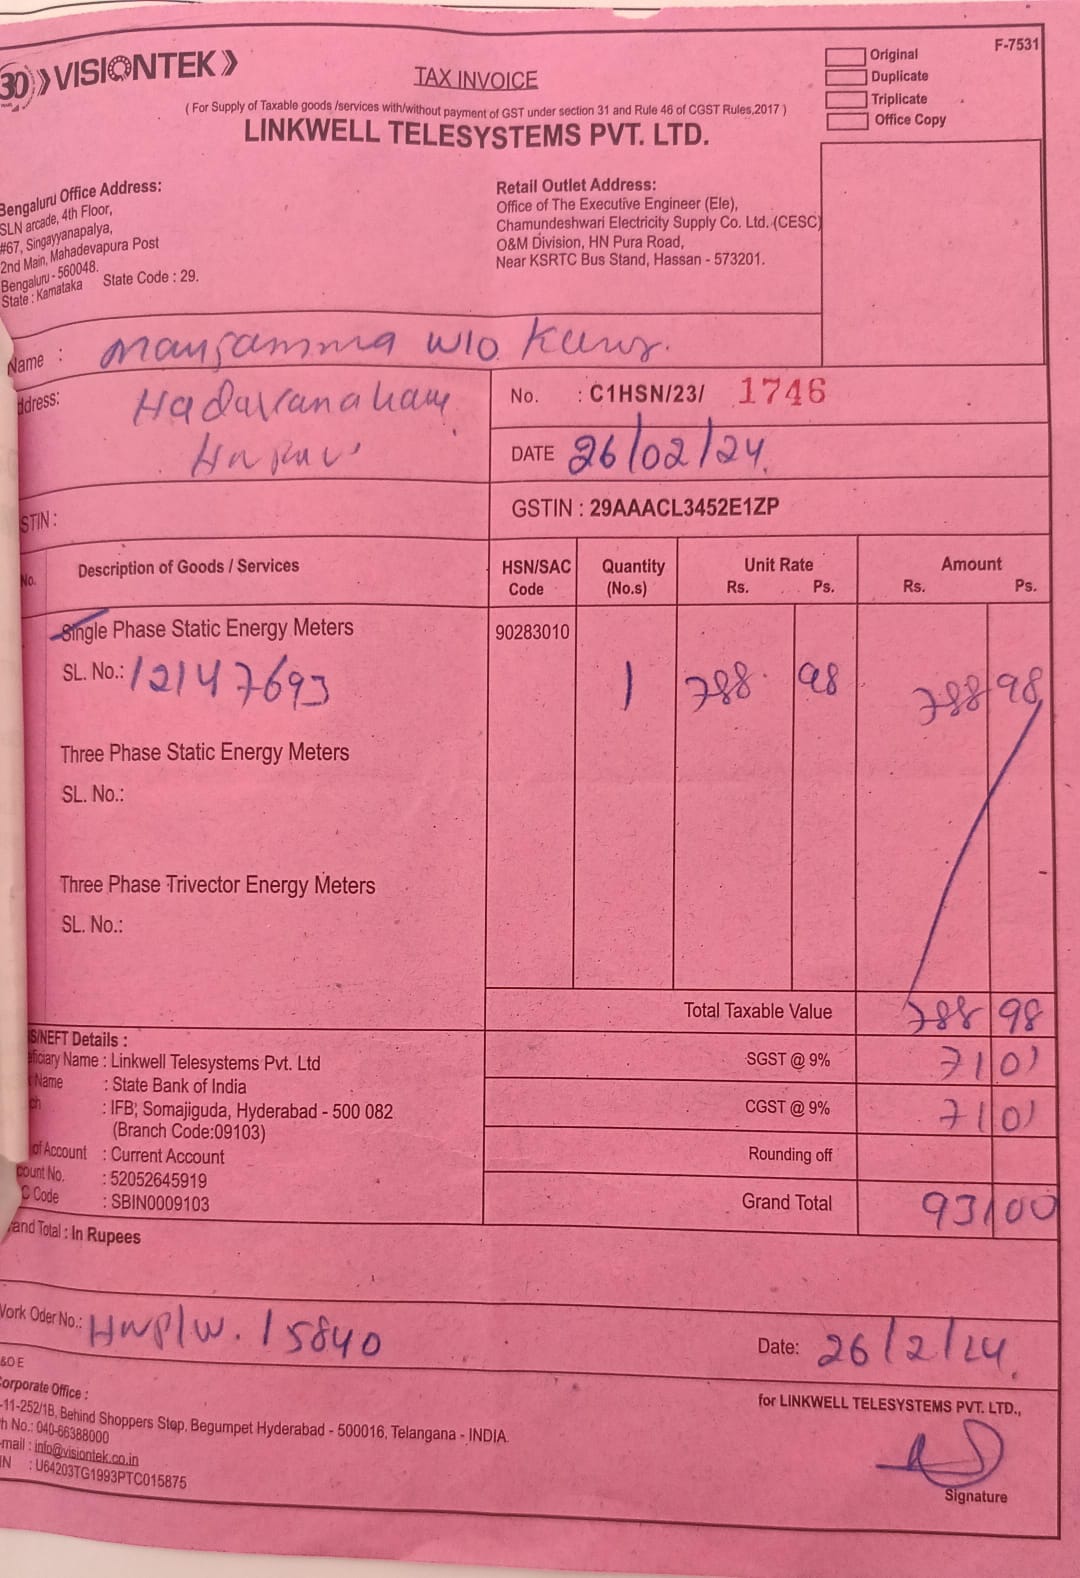 30 VISIONTEK
TAX INVOICE
F-7531
Original
Duplicate
Triplicate
Office Copy
( For Supply of Taxable goods /services with/without payment of GST under section 31 and Rule 46 of CGST Rules,2017 )
LINKWELL TELESYSTEMS PVT. LTD.
Bengaluru Office Address:
SLN arcade, 4th Floor,
#67, Singayyanapalya,
2nd Main, Mahadevapura Post
Bengaluru - 560048.
State : Karnataka State Code : 29.
Retail Outlet Address:
Office of The Executive Engineer (Ele),
Chamundeshwari Electricity Supply Co. Ltd. (CESC)
O&M Division, HN Pura Road,
Near KSRTC Bus Stand, Hassan - 573201.
Name : W/O
ddress:
No. : C1HSN/23/ 1746
DATE 26/02/24
STIN :
GSTIN : 29AAACL3452E1ZP
No. Description of Goods / Services HSN/SAC Code Quantity (No.s) Unit Rate Rs. Ps. Amount Rs. Ps.
Single Phase Static Energy Meters 90283010
SL. No.: 12147693 1 788 98 788 98
Three Phase Static Energy Meters
SL. No.:
Three Phase Trivector Energy Meters
SL. No.:
Total Taxable Value 788 98
SGST @ 9% 71 01
CGST @ 9% 71 01
Rounding off
Grand Total 931 00
S/NEFT Details :
eficiary Name : Linkwell Telesystems Pvt. Ltd
Name : State Bank of India
ch : IFB, Somajiguda, Hyderabad - 500 082
(Branch Code:09103)
of Account : Current Account
count No. : 52052645919
C Code : SBIN0009103
rand Total : In Rupees
Work Oder No.: HNP/W. 15840
Date: 26/2/24
&O E
Corporate Office :
-11-252/1B, Behind Shoppers Stop, Begumpet Hyderabad - 500016, Telangana - INDIA.
h No.: 040-66388000
-mail : info@visiontek.co.in
IN : U64203TG1993PTC015875
for LINKWELL TELESYSTEMS PVT. LTD.,
Signature